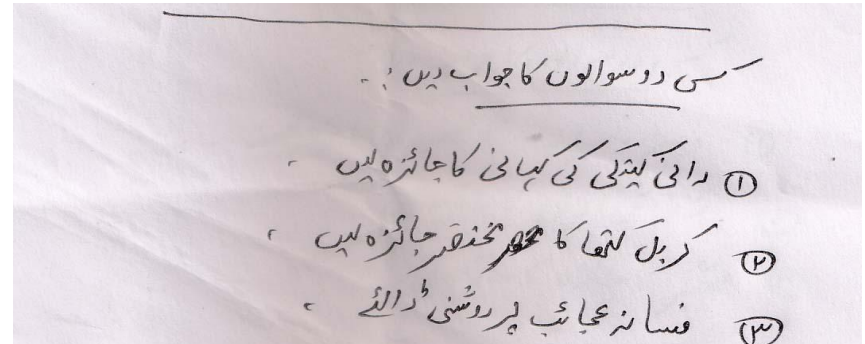 کسی دو سوالوں کا جواب دیں :۔
① رانی کیتکی کی کہانی کا جائزہ لیں ۔
② کربل کتھا کا مختصر جائزہ لیں ۔
③ فسانہ عجائب پر روشنی ڈالئے ۔